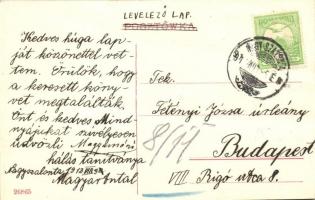 LEVELEZŐ LAP.
Kedves húga lap-
ját köszönettel vet-
tem. Örülök, hogy
a keresett köny-
vet megtalálták.
Önt és kedves Mind-
nyájukat szívélyesen
üdvözli
hálás tanítványa
Magyar Antal
Tek.
Fetényi Józsa úrleány
8/14
Budapest
VIII. Rigó utca 8.
20865